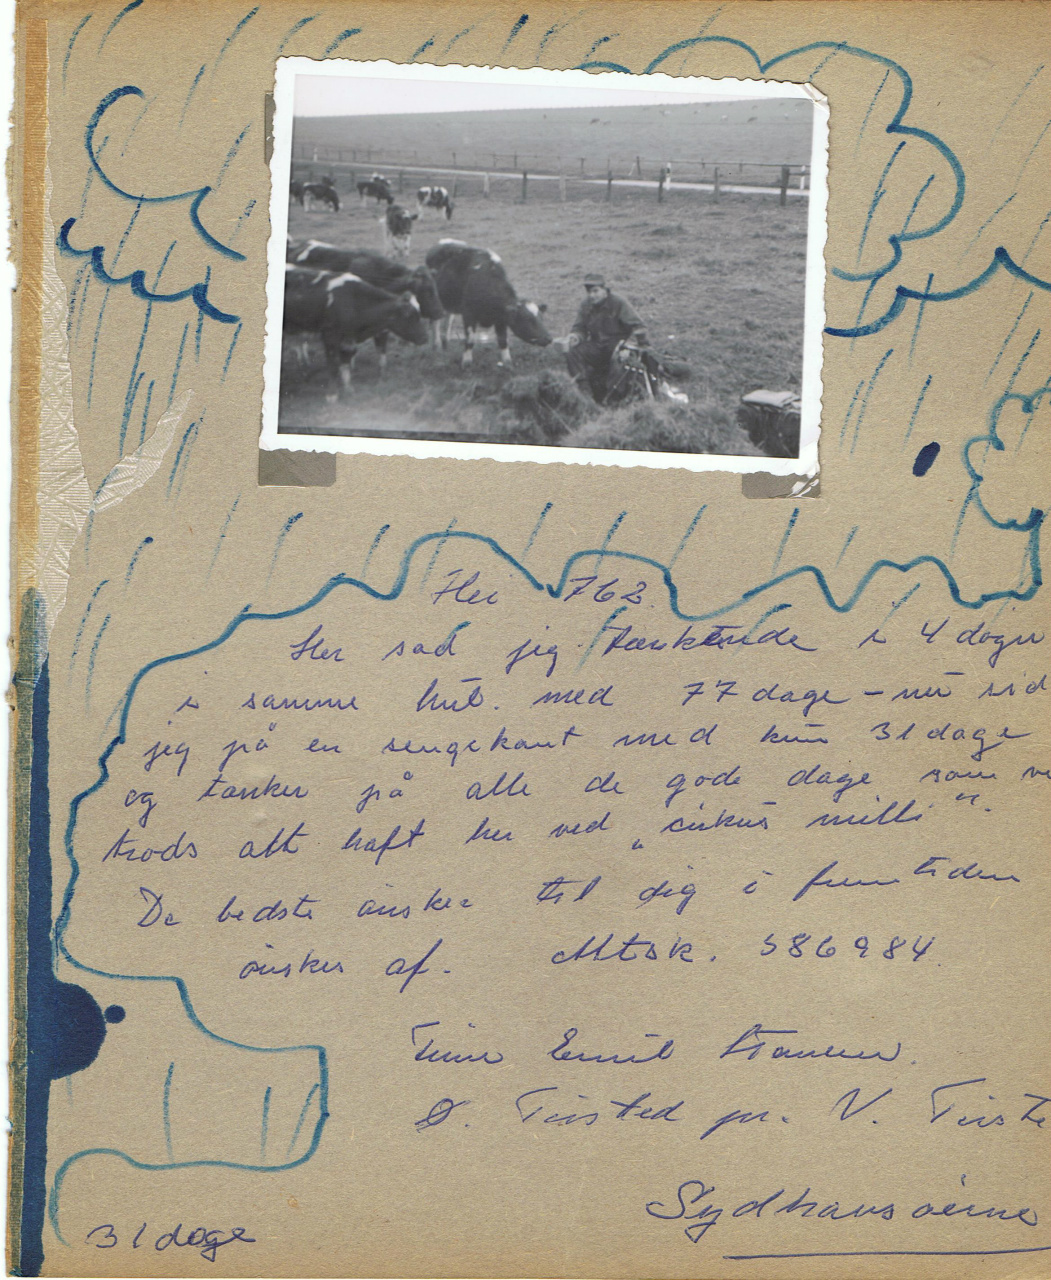 Hei 762.
Her sad jeg tænkende i 4 døgn
i samme hul. med 77 dage – nu sid
jeg på en sengekant med kun 31 dage
og tænker på alle de gode dage som vi
trods alt haft her ved „cirkus milli".
De bedste ønsker til dig i fremtiden
ønskes af. Mtsk. 586984.
Finn Emil
Ø. Tirsted pr. V. Tirste
Sydhavsøerne
31 dage